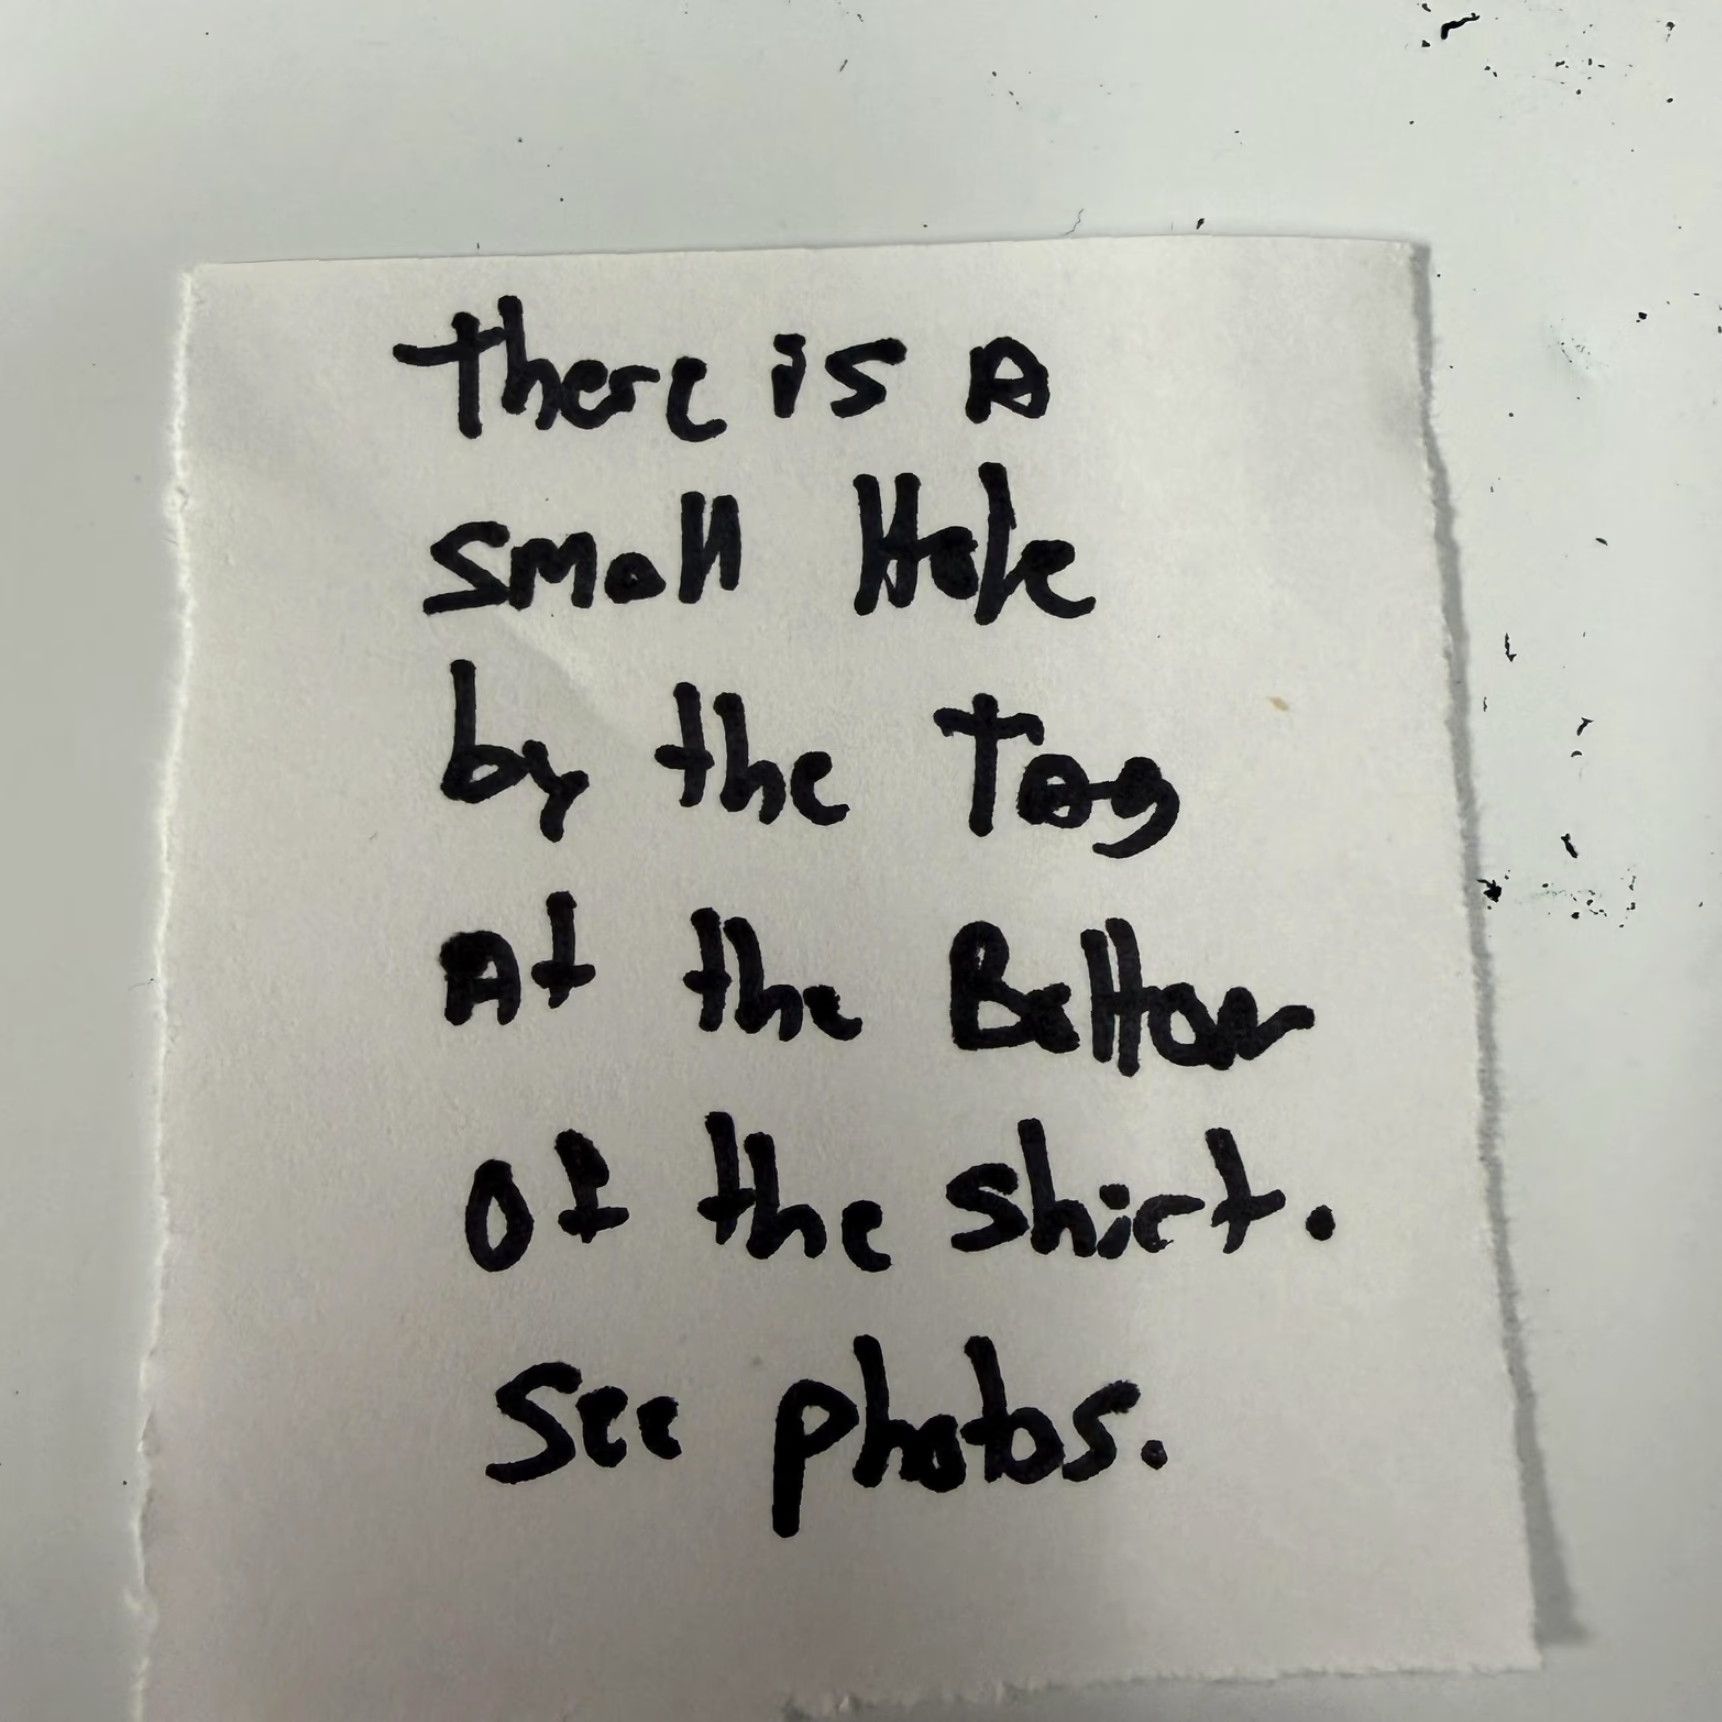 there is A
small Hole
by the Tag
At the Bottom
of the shirt.
See photos.